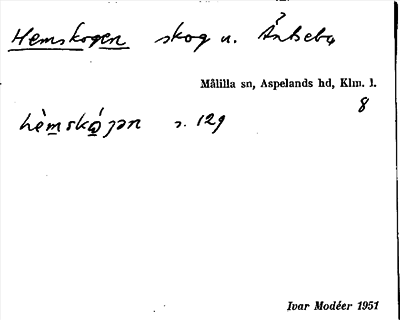 Hemskogen skog u. Änkeby
Målilla sn, Aspelands hd, Klm. l.
8
hèmskó̱gən s. 129
Ivar Modéer 1951